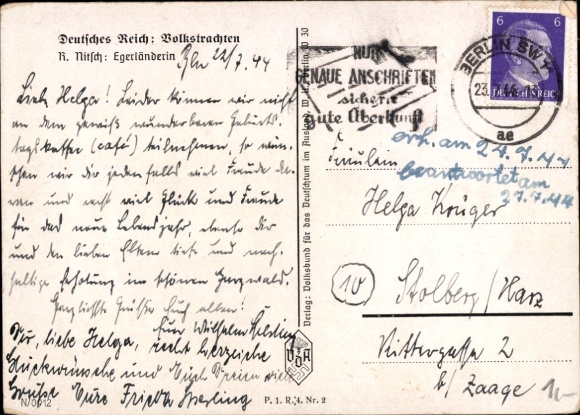 Deutsches Reich: Volkstrachten
R. Nitsch: Egerländerin
Bln 22/7. 44
Liebe Helga! Leider können wir nicht
an dem gewiß wunderbaren Geburts-
tagskaffee (café) teilnehmen, so wün-
schen wir dir jedenfalls viel Freude da-
ran und recht viel Glück und Freude
für das neue Lebensjahr, ebenso dir
und den lieben Eltern und nach-
haltige Erholung im schönen Harzwald.
Herzliche Grüße Euch allen!
Wilhelm
Dir, liebe Helga, recht herzliche
Glückwünsche und Euch Dreien viele
Grüße Eure Frieda
N/0912
Verlag: Volksbund für das Deutschtum im Ausland, W. Berlin, W 30
VDA
P. 1. R. 4. Nr. 2
NUR
GENAUE ANSCHRIFTEN
sichern
gute Überkunft
BERLIN SW
23.
44
ae
6 6
DEUTSCHES REICH
erh. am 24. 7. 44
beantwortet am
27.7.44
Fräulein
Helga Krüger
10
Stolberg/Harz
Rittergasse 2
b/ Zaage